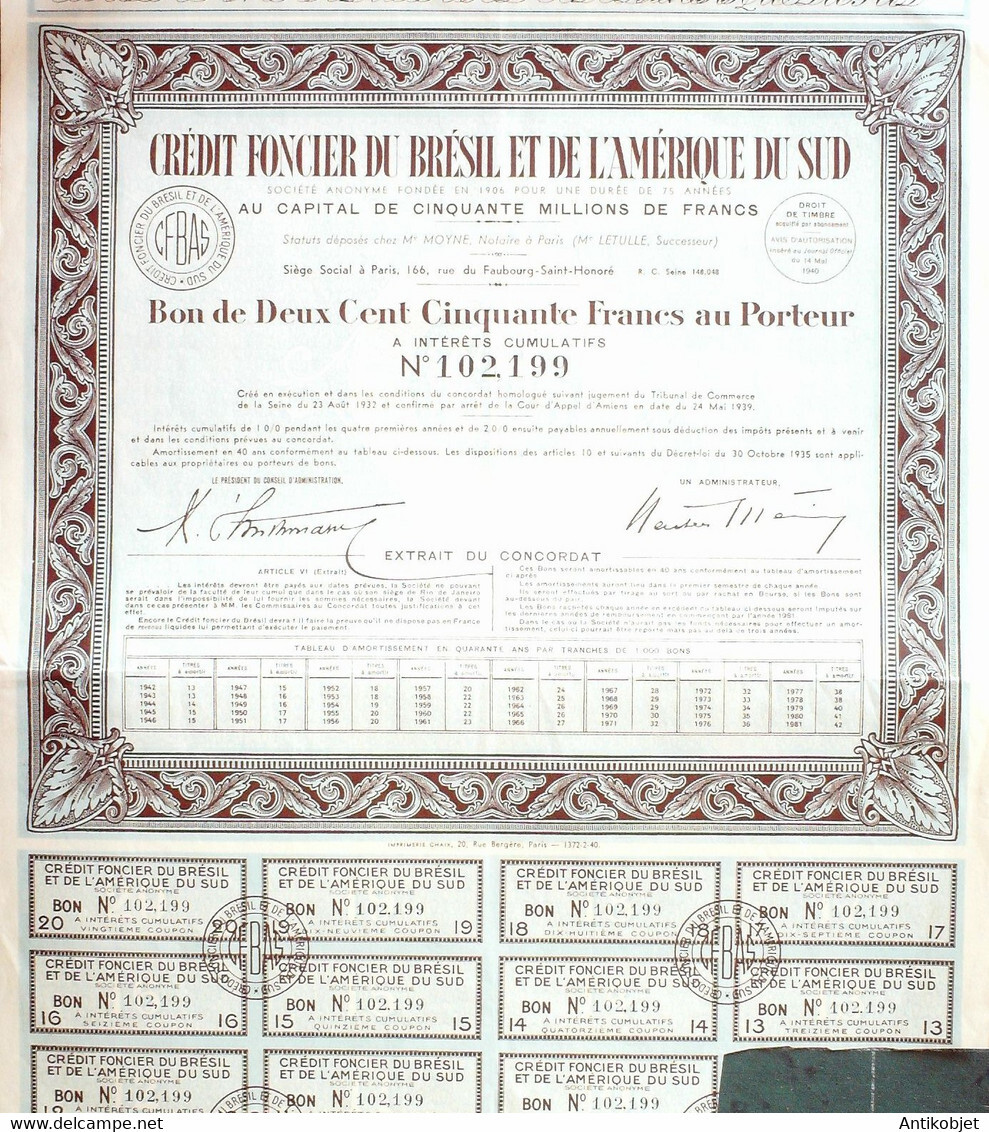 CRÉDIT FONCIER DU BRÉSIL ET DE L'AMÉRIQUE DU SUD
SOCIÉTÉ ANONYME FONDÉE EN 1906 POUR UNE DURÉE DE 75 ANNÉES
AU CAPITAL DE CINQUANTE MILLIONS DE FRANCS
Statuts déposés chez Me MOYNE, Notaire à Paris (Me LETULLE, Successeur)
Siège Social à Paris, 166, rue du Faubourg-Saint-Honoré R. C. Seine 148.048
CRÉDIT FONCIER DU BRÉSIL ET DE L'AMÉRIQUE DU SUD
CFBAS
DROIT
DE TIMBRE
acquitté par abonnement
AVIS D'AUTORISATION
inséré au Journal Officiel
du 14 Mai
1940
Bon de Deux Cent Cinquante Francs au Porteur
A INTÉRÊTS CUMULATIFS
N° 102,199
Créé en exécution et dans les conditions du concordat homologué suivant jugement du Tribunal de Commerce
de la Seine du 23 Août 1932 et confirmé par arrêt de la Cour d'Appel d'Amiens en date du 24 Mai 1939.
Intérêts cumulatifs de 1 0/0 pendant les quatre premières années et de 2 0/0 ensuite payables annuellement sous déduction des impôts présents et à venir
et dans les conditions prévues au concordat.
Amortissement en 40 ans conformément au tableau ci-dessous. Les dispositions des articles 10 et suivants du Décret-loi du 30 Octobre 1935 sont appli-
cables aux propriétaires ou porteurs de bons.
LE PRÉSIDENT DU CONSEIL D'ADMINISTRATION,
UN ADMINISTRATEUR,
EXTRAIT DU CONCORDAT
ARTICLE VI (Extrait)
Les intérêts devront être payés aux dates prévues, la Société ne pouvant
se prévaloir de la faculté de leur cumul que dans le cas où son siège de Rio de Janeiro
serait dans l'impossibilité de lui fournir les sommes nécessaires, la Société devant
dans ce cas présenter à MM. les Commissaires au Concordat toutes justifications à cet
effet.
Encore le Crédit foncier du Brésil devra-t-il faire la preuve qu'il ne dispose pas en France
de revenus liquides lui permettant d'exécuter le paiement.
Ces Bons seront amortissables en 40 ans conformément au tableau d'amortissement
ci après
Les amortissements auront lieu dans le premier semestre de chaque année.
Ils seront effectués par tirage au sort ou par rachat en Bourse, si les Bons sont
au-dessous du pair.
Les Bons rachetés chaque année en excédent du tableau ci-dessous seront imputés sur
les dernières années de remboursement en commençant par l'année 1981
Dans le cas où la Société n'aurait pas les fonds nécessaires pour effectuer un amor-
tissement, celui-ci pourrait être reporté mais pas au delà de trois années.
TABLEAU D'AMORTISSEMENT EN QUARANTE ANS PAR TRANCHES DE 1.000 BONS
ANNÉES TITRES à amortir ANNÉES TITRES à amortir ANNÉES TITRES à amortir ANNÉES TITRES à amortir ANNÉES TITRES à amortir ANNÉES TITRES à amortir ANNÉES TITRES à amortir ANNÉES TITRES à amortir
1942 13 1947 15 1952 18 1957 20 1962 24 1967 28 1972 32 1977 38
1943 13 1948 16 1953 18 1958 22 1963 25 1968 29 1973 33 1978 38
1944 14 1949 16 1954 19 1959 22 1964 26 1969 29 1974 34 1979 40
1945 15 1950 17 1955 20 1960 22 1965 26 1970 30 1975 35 1980 41
1946 15 1951 17 1956 20 1961 23 1966 27 1971 32 1976 36 1981 42
IMPRIMERIE CHAIX, 20, Rue Bergère, Paris — 1372-2-40.
CRÉDIT FONCIER DU BRÉSIL
ET DE L'AMÉRIQUE DU SUD
SOCIÉTÉ ANONYME
BON N° 102,199
A INTÉRÊTS CUMULATIFS
20 VINGTIÈME COUPON 20
CRÉDIT FONCIER DU BRÉSIL
ET DE L'AMÉRIQUE DU SUD
SOCIÉTÉ ANONYME
BON N° 102,199
A INTÉRÊTS CUMULATIFS
19 DIX-NEUVIÈME COUPON 19
CRÉDIT FONCIER DU BRÉSIL
ET DE L'AMÉRIQUE DU SUD
SOCIÉTÉ ANONYME
BON N° 102,199
A INTÉRÊTS CUMULATIFS
18 DIX-HUITIÈME COUPON 18
CRÉDIT FONCIER DU BRÉSIL
ET DE L'AMÉRIQUE DU SUD
SOCIÉTÉ ANONYME
BON N° 102,199
A INTÉRÊTS CUMULATIFS
17 DIX-SEPTIÈME COUPON 17
CRÉDIT FONCIER DU BRÉSIL
ET DE L'AMÉRIQUE DU SUD
SOCIÉTÉ ANONYME
BON N° 102,199
A INTÉRÊTS CUMULATIFS
16 SEIZIÈME COUPON 16
CRÉDIT FONCIER DU BRÉSIL
ET DE L'AMÉRIQUE DU SUD
SOCIÉTÉ ANONYME
BON N° 102,199
A INTÉRÊTS CUMULATIFS
15 QUINZIÈME COUPON 15
CRÉDIT FONCIER DU BRÉSIL
ET DE L'AMÉRIQUE DU SUD
SOCIÉTÉ ANONYME
BON N° 102,199
A INTÉRÊTS CUMULATIFS
14 QUATORZIÈME COUPON 14
CRÉDIT FONCIER DU BRÉSIL
ET DE L'AMÉRIQUE DU SUD
SOCIÉTÉ ANONYME
BON N° 102,199
A INTÉRÊTS CUMULATIFS
13 TREIZIÈME COUPON 13
CRÉDIT FONCIER DU BRÉSIL
ET DE L'AMÉRIQUE DU SUD
SOCIÉTÉ ANONYME
BON N° 102,199
A INTÉRÊTS CUMULATIFS
CRÉDIT FONCIER DU BRÉSIL
ET DE L'AMÉRIQUE DU SUD
SOCIÉTÉ ANONYME
BON N° 102,199
A INTÉRÊTS CUMULATIFS
CRÉDIT FONCIER DU BRÉSIL
ET DE L'AMÉRIQUE DU SUD
SOCIÉTÉ ANONYME
BON N° 102,199
Antikobjet